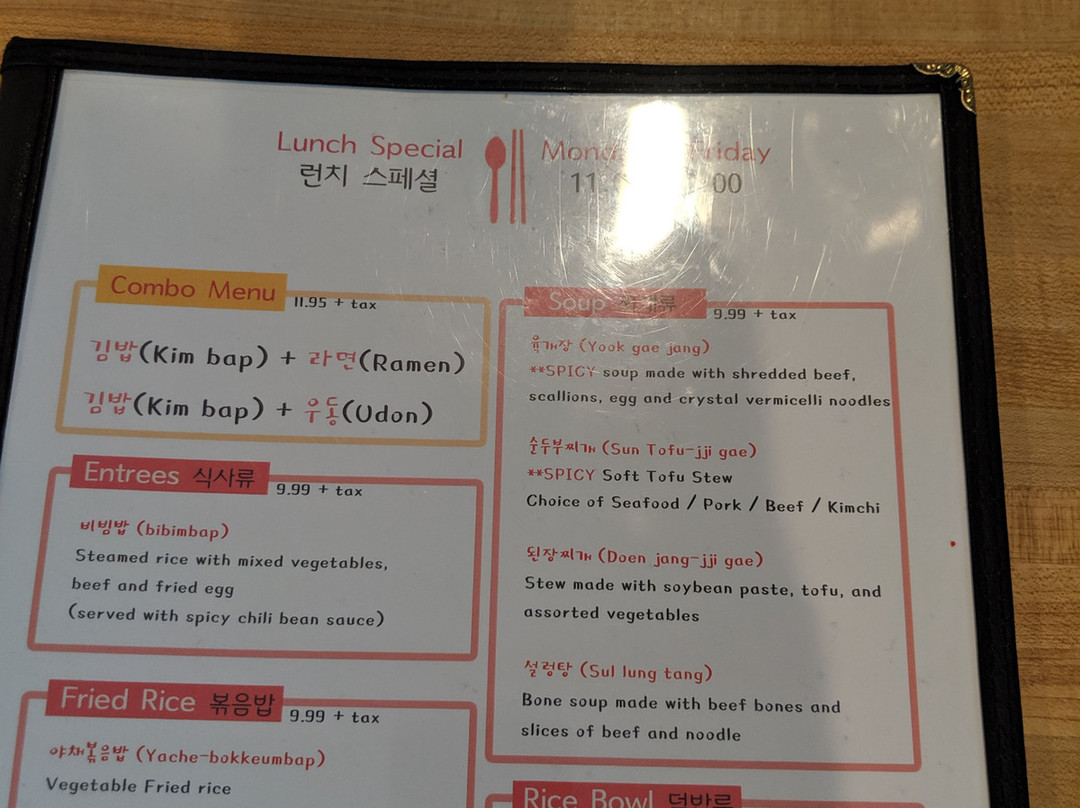 Lunch Special
런치 스페셜
Combo Menu 11.95 + tax
김밥(Kim bap) + 라면(Ramen)
김밥(Kim bap) + 우동(Udon)
Entrees 식사류 9.99 + tax
비빔밥 (bibimbap)
Steamed rice with mixed vegetables,
beef and fried egg
(served with spicy chili bean sauce)
Fried Rice 볶음밥 9.99 + tax
야채볶음밥 (Yache-bokkeumbap)
Vegetable Fried rice
Soup 9.99 + tax
육개장 (Yook gae jang)
**SPICY soup made with shredded beef,
scallions, egg and crystal vermicelli noodles
순두부찌개 (Sun Tofu-jji gae)
**SPICY Soft Tofu Stew
Choice of Seafood / Pork / Beef / Kimchi
된장찌개 (Doen jang-jji gae)
Stew made with soybean paste, tofu, and
assorted vegetables
설렁탕 (Sul lung tang)
Bone soup made with beef bones and
slices of beef and noodle
Rice Bowl 덮밥류